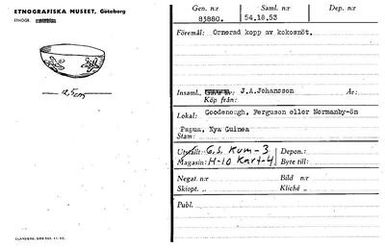 ETNOGRAFISKA MUSEET, Göteborg
ETNOGR.
12,5cm
Gen. n:r Saml. n:r Dep. n:r
83880. 54.18.53
Föremål: Ornerad kopp av kokosnöt.
Insaml. J.A.Johansson År:
Köp från:
Lokal: Goodenough, Ferguson eller Normanby-ön
Papua, Nya Guinea
Stam:
Utställt: G.S. Kum-3 Depon.:
Magasin: H-10 Kart-4 Byte till:
Negat. n:r Bild n:r
Skiopt. „ Kliché „
Publ.